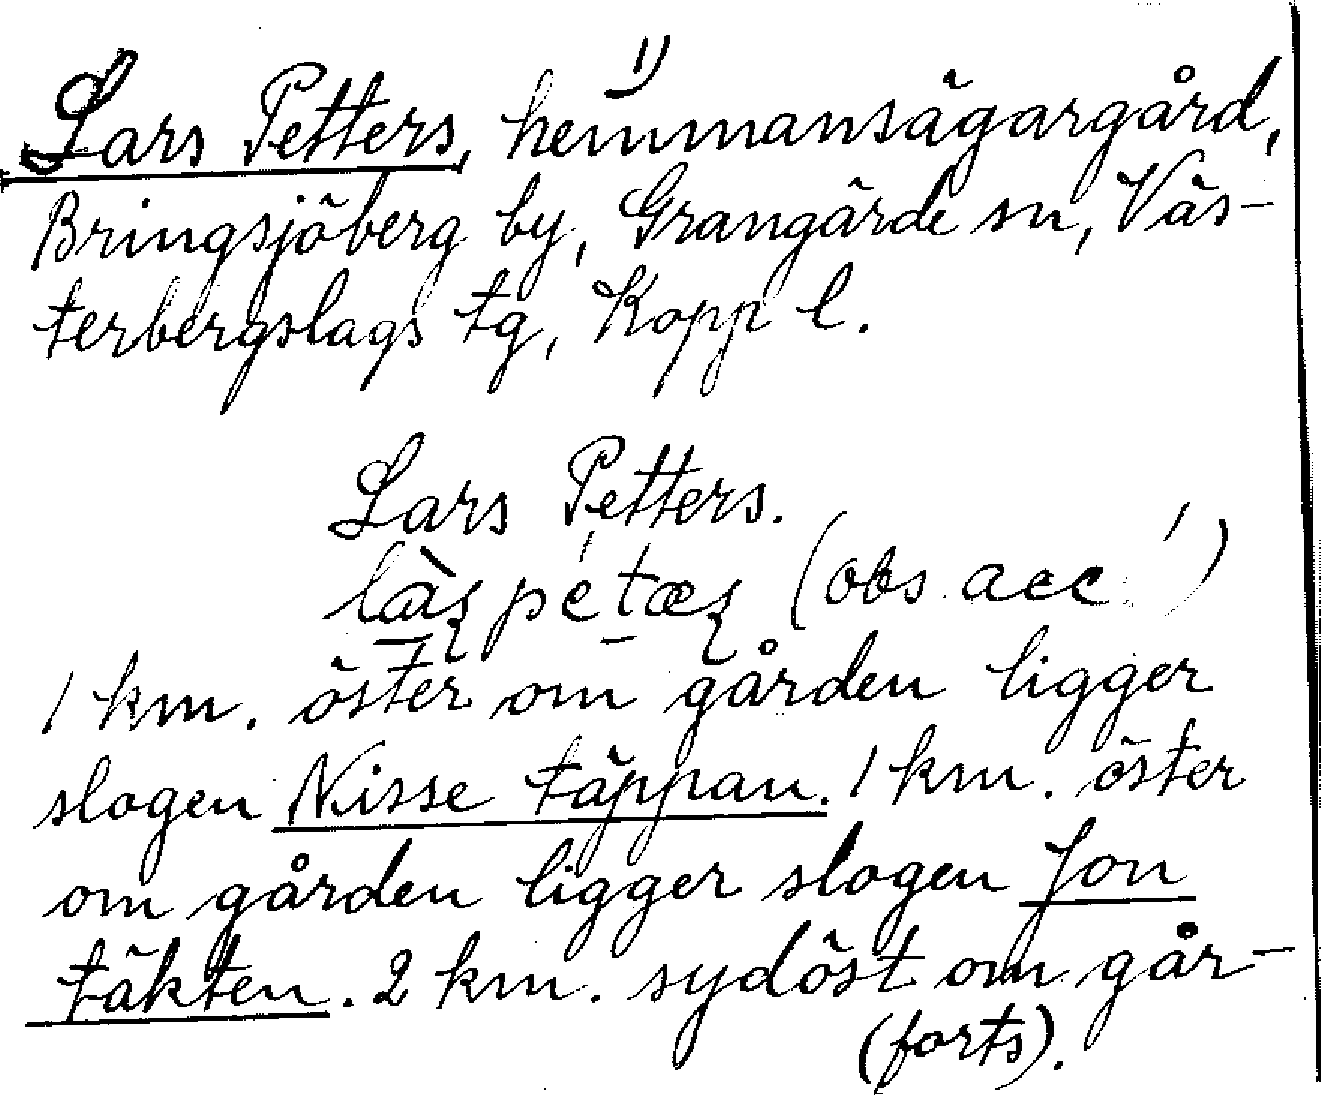 Lars Petters, hemmansägargård, 1)
Bringsjöberg by, Grangärde sn, Väs-
terbergslags tg, Kopp l.
Lars Petters.
(obs. acc. ')
1 km. öster om gården ligger
slogen Nisse täppan. 1 km. öster
om gården ligger slogen Jon
täkten. 2 km. sydöst om går-
(forts).